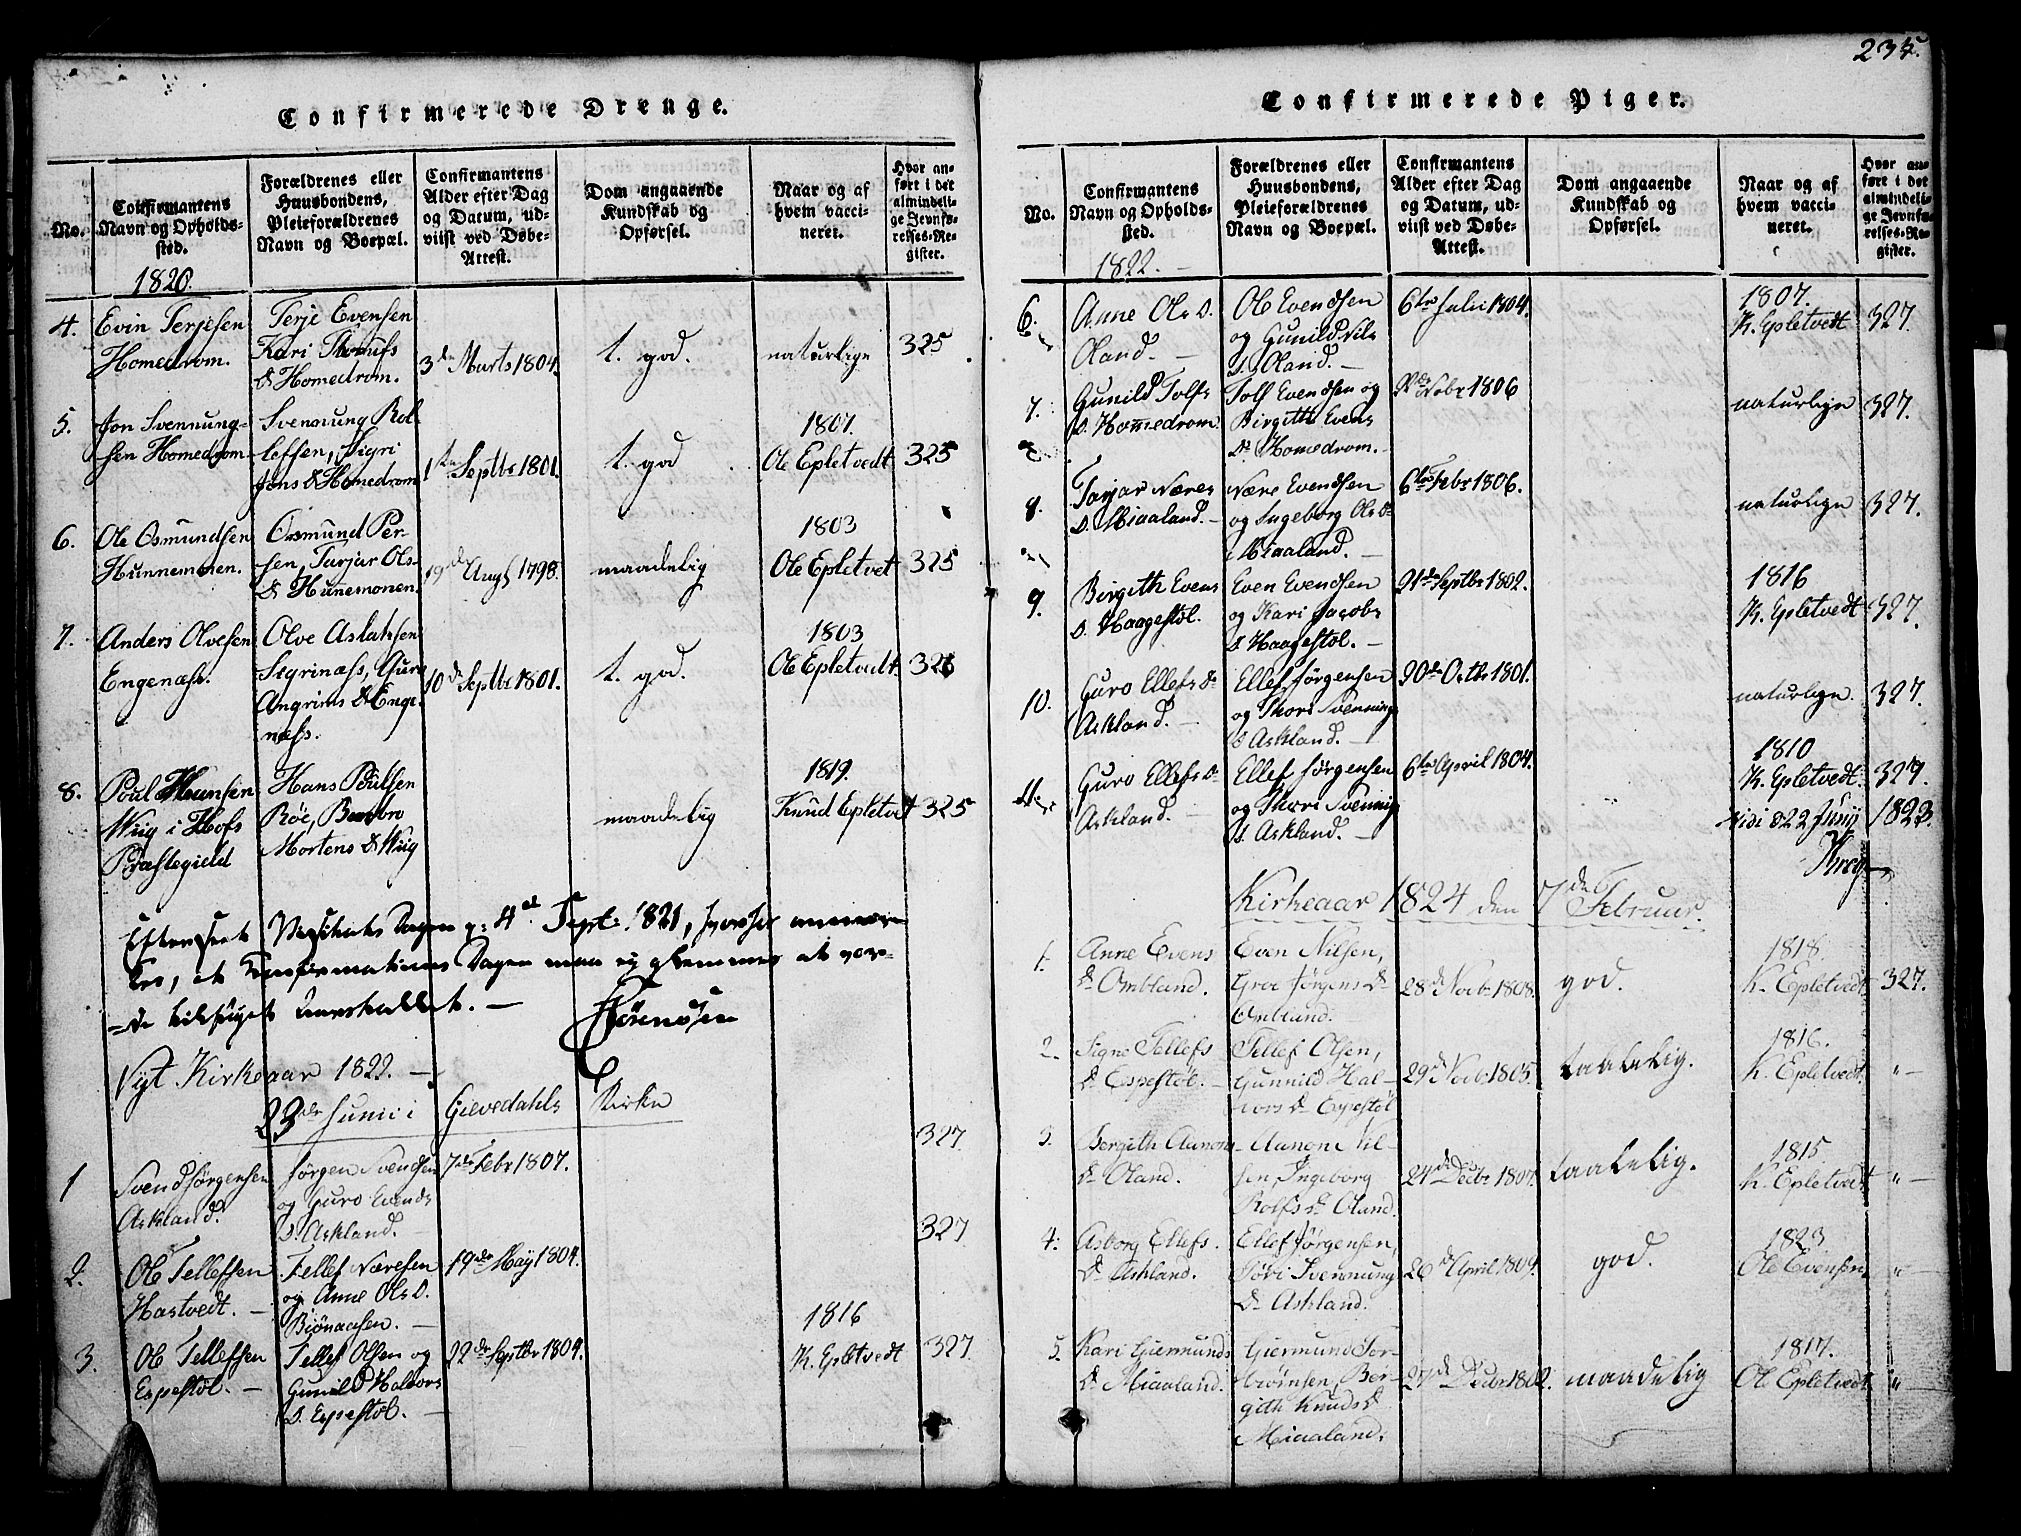 235.
Confirmerede Drenge.
No.
Confirmantens
Navn og Opholds-
sted.
1820.
Forældrenes eller
Huusbondens,
Pleieforældrenes
Navn og Boepæl.
Confirmantens
Alder efter Dag
og Datum, ud-
viist ved Døbe-
Attest.
Dom angaaende
Kundskab og
Opførsel.
Naar og af
hvem vacci-
neret.
Hvor an-
ført i det
almindeli-
ge Jevnfø-
relses-Re-
gister.
4. Evin Terjesen
Homedrom.
Terje Evensen
Kari
D. Homedrom.
3de Marts 1804.
t. god.
naturlige
325
5. Jon Svennung-
sen Homedrom
Svennung Rol-
lefsen, Sigri
Jons D. Homedrom
1ste Septbr 1801.
t. god
1807.
Ole Epletvedt
325
6. Ole Osmundsen
Hunnemonen.
Osmund Per-
sen, Tarjar Ols-
D. Hunemonen.
19de Aug 1798.
maadelig
1803
Ole Epletvet
325
7. Anders Olvesen
Engenæss.
Olve Aslaksen
Sigrinæss, Guro
Angrims D. Enge-
næss.
10de Septbr 1801.
t. god.
1803
Ole Epletvedt
326
8. Poul Hansen
Wiig i Hofs
Præstegield
Hans Poulsen
Røe, Barbro
Mortens D. Wiig
maadelig
1819.
Knud Epletvet
325
Efterseet Visitats Dagen d: 4de Sept: 1821, hvorhos anmær-
kes, at Confirmations Dagen maa ey glemmes at vor-
de tilføyet Aarstallet. —
Sørensen
Nyt Kirkeaar 1822. —
23de Junii i Gievedahls Kirke
1 Svend Jørgensen
Askland.
Jørgen Svendsen
og Guro Evends
D. Askland. —
7de Febr 1807.
327
2. Ole Tellefsen
Hastvedt. —
Tellef Næresen
og Anne Ols D.
Biønaasen. —
19de May 1804.
327
3. Ole Tellefsen
Espestøl. —
Tellef Olsen og
Gunild Halvors
D. Espestøl. —
22de Septbr 1804.
1816
K. Epletvedt
327
Confirmerede Piger.
No.
Confirmantens
Navn og Opholds-
sted.
1822. —
Forældrenes eller
Huusbondens,
Pleieforældrenes
Navn og Boepæl.
Confirmantens
Alder efter Dag
og Datum, ud-
viist ved Døbe-
Attest.
Dom angaaende
Kundskab og
Opførsel.
Naar og af
hvem vacci-
neret.
Hvor an-
ført i det
almindeli-
ge Jevnfø-
relses-Re-
gister.
6. Anne Ols D.
Oland. —
Ole Evendsen
og Gunild Nils
D. Oland. —
6te Julii 1804.
1807.
K. Epletvedt
327.
7. Gunild Tolfs
D. Hommedrom
Tolf Evendsen og
Birgith Evens
D. Homedrom. —
1806
naturlign
327.
8. Tarjar Næres
D. Miaaland. —
Nære Evendsen
og Ingeborg Ols D.
Miaaland. —
6te Febr 1806.
naturlign
327.
9. Birgith Evens
D. Haagestøl.
Even Evendsen
og Kari Jacobs
D. Haagestøl. —
21de Septbr 1802.
1816
K. Epletvedt
327.
10. Guro Ellefs D.
Askland. —
Ellef Jørgensen
og Thori Svennings
D. Askland. —
20de Octbr 1801.
naturlign.
327.
11. Guro Ellefs D.
Askland. —
Ellef Jørgensen
og Thori Svennings
D. Askland. —
6te April 1804.
1810
K. Epletvedt
327.
vidi d 22 Junij 1823.
Kirkeaar 1824 den 7de Februar.
1. Anne Evens
D. Ombland.
Even Nilsen,
Groe Jørgens D.
Ombland.
28de Novbr 1808.
god.
1818.
K. Epletvedt
327.
2. Signe Tellefs
D. Espestøl. —
Tellef Olsen,
Gunnild Hal-
vors D. Espestøl
29de Novbr 1805.
taalelig.
1816.
K. Epletvedt
" —
3. Bergith Aanons
D. Oland.
Aanon Nil-
sen, Ingeborg
Rolfs D. Oland.
24de Decbr 1807.
taalelig.
1815.
K. Epletvedt
" —
4. Asborg Ellefs.
D. Askland.
Ellef Jørgensen,
Tøri Svennung
D. Askland.
26de April 1809.
god.
1823
Ole Evensen
" —
5. Kari Giermunds
D. Miaaland.
Giermund Tor-
biørnsen, Ber-
gith Knuds D.
Miaaland.
27de Decbr 1802.
maadelig
1817.
Ole Epletvedt
" —